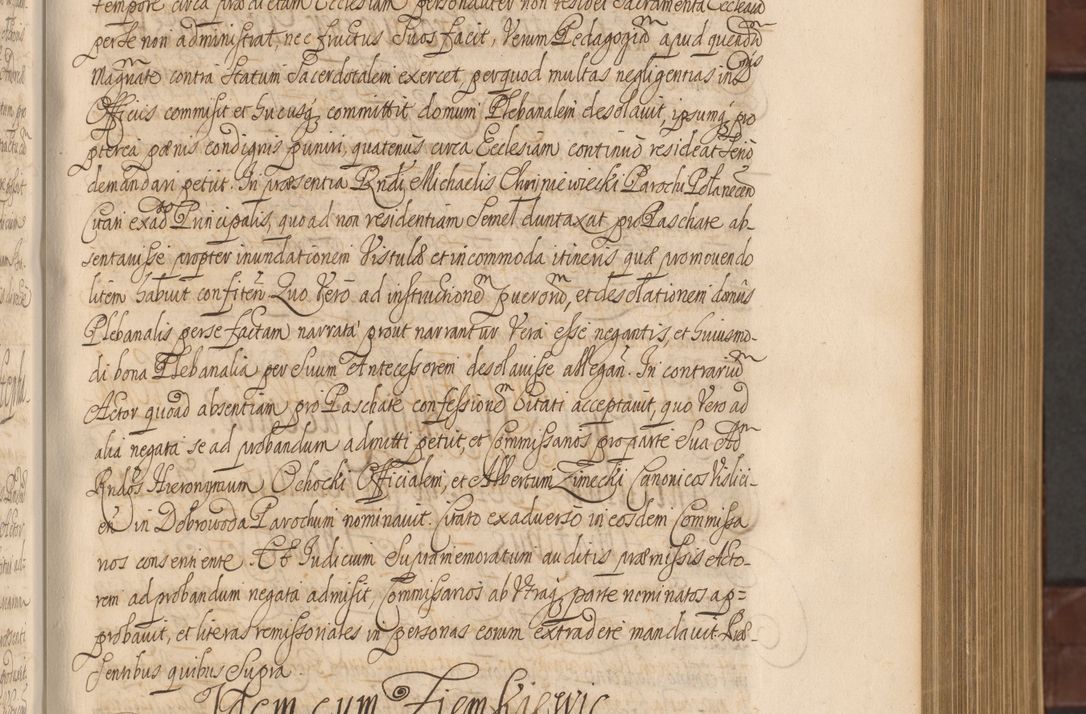 tempore circa productam Ecclesiam personaliter non residet Sacramenta Ecclesiae
per se non administrat, nec fructus Suos facit, Verum Pedagogiam apud quendam
Magnate contra Statum Sacerdotalem exercet, per quod multas negligentias in Suis
Officiis commisit et hucusq committit domum Plebanalem desolavit, ipsumq pro
pterea paenis condignis puniri, quatenus circa Ecclesiam continuo resideat Serio
demandari petiit. In praesentia Rndi Michaelis Chriniewiecki Parochi Polanecen
Citati ex adto Principalis, quoad non residentiam Semel duntaxat pro Paschate ab-
sentavisse propter inundationem Vistulae et incommoda itineris quae promovendo
litem habuit confiten Quo Vero ad instructionem puerorum, et desolationem domus
Plebanalis per se factam narrata prout narrantur Vera esse negantis, et huiusmo-
di bona Plebanalia per Suum Antecessorem desolavisse allegan. In contrarium
Actor quoad absentiam pro Paschate confessionem Citati acceptavit, quo Vero ad
alia negata se ad probandum admitti petiit et Commissarios pro parte Sua Adm
Rndos Hieronymum Ochocki Officialem, et Albertum Zimecki Canonicos Vislici-
en in Dobrowoda Parochum nominavit. Citato ex adverso in eosdem Commissa
rios consentiente. Et Iudicium Supramemoratum auditis praemissis Acto-
rem ad probandum negata admisit, Commissarios ab Utraq parte nominatos ap=
probavit, et literas remissoriales in personas eorum extradere mandavit. Prae-
sentibus quibus Supra.
Idem cum Ziemkiewic